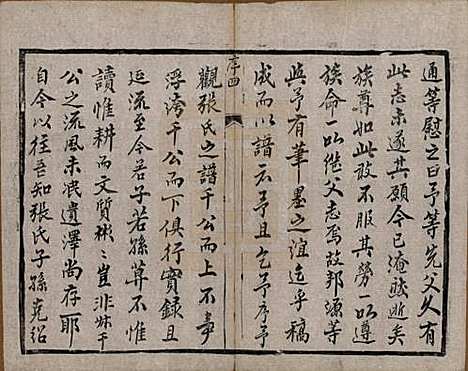 通等慰之曰予等先父久有
此志未遂其願今已淹然逝矣
族尊如此敢不服其勞一以遵
族命一以繼父志焉故邦源等
與予有筆墨之誼迄乎稿
成而以譜示予且乞予序予
序四
觀張氏之譜千公而上不事
浮誇千公而下俱行實錄且
延流至今若子若孫莫不惟
讀惟耕而文質彬彬豈非妹千
公之流風未泯遺澤尚存耶
自今以往吾知張氏子孫克紹